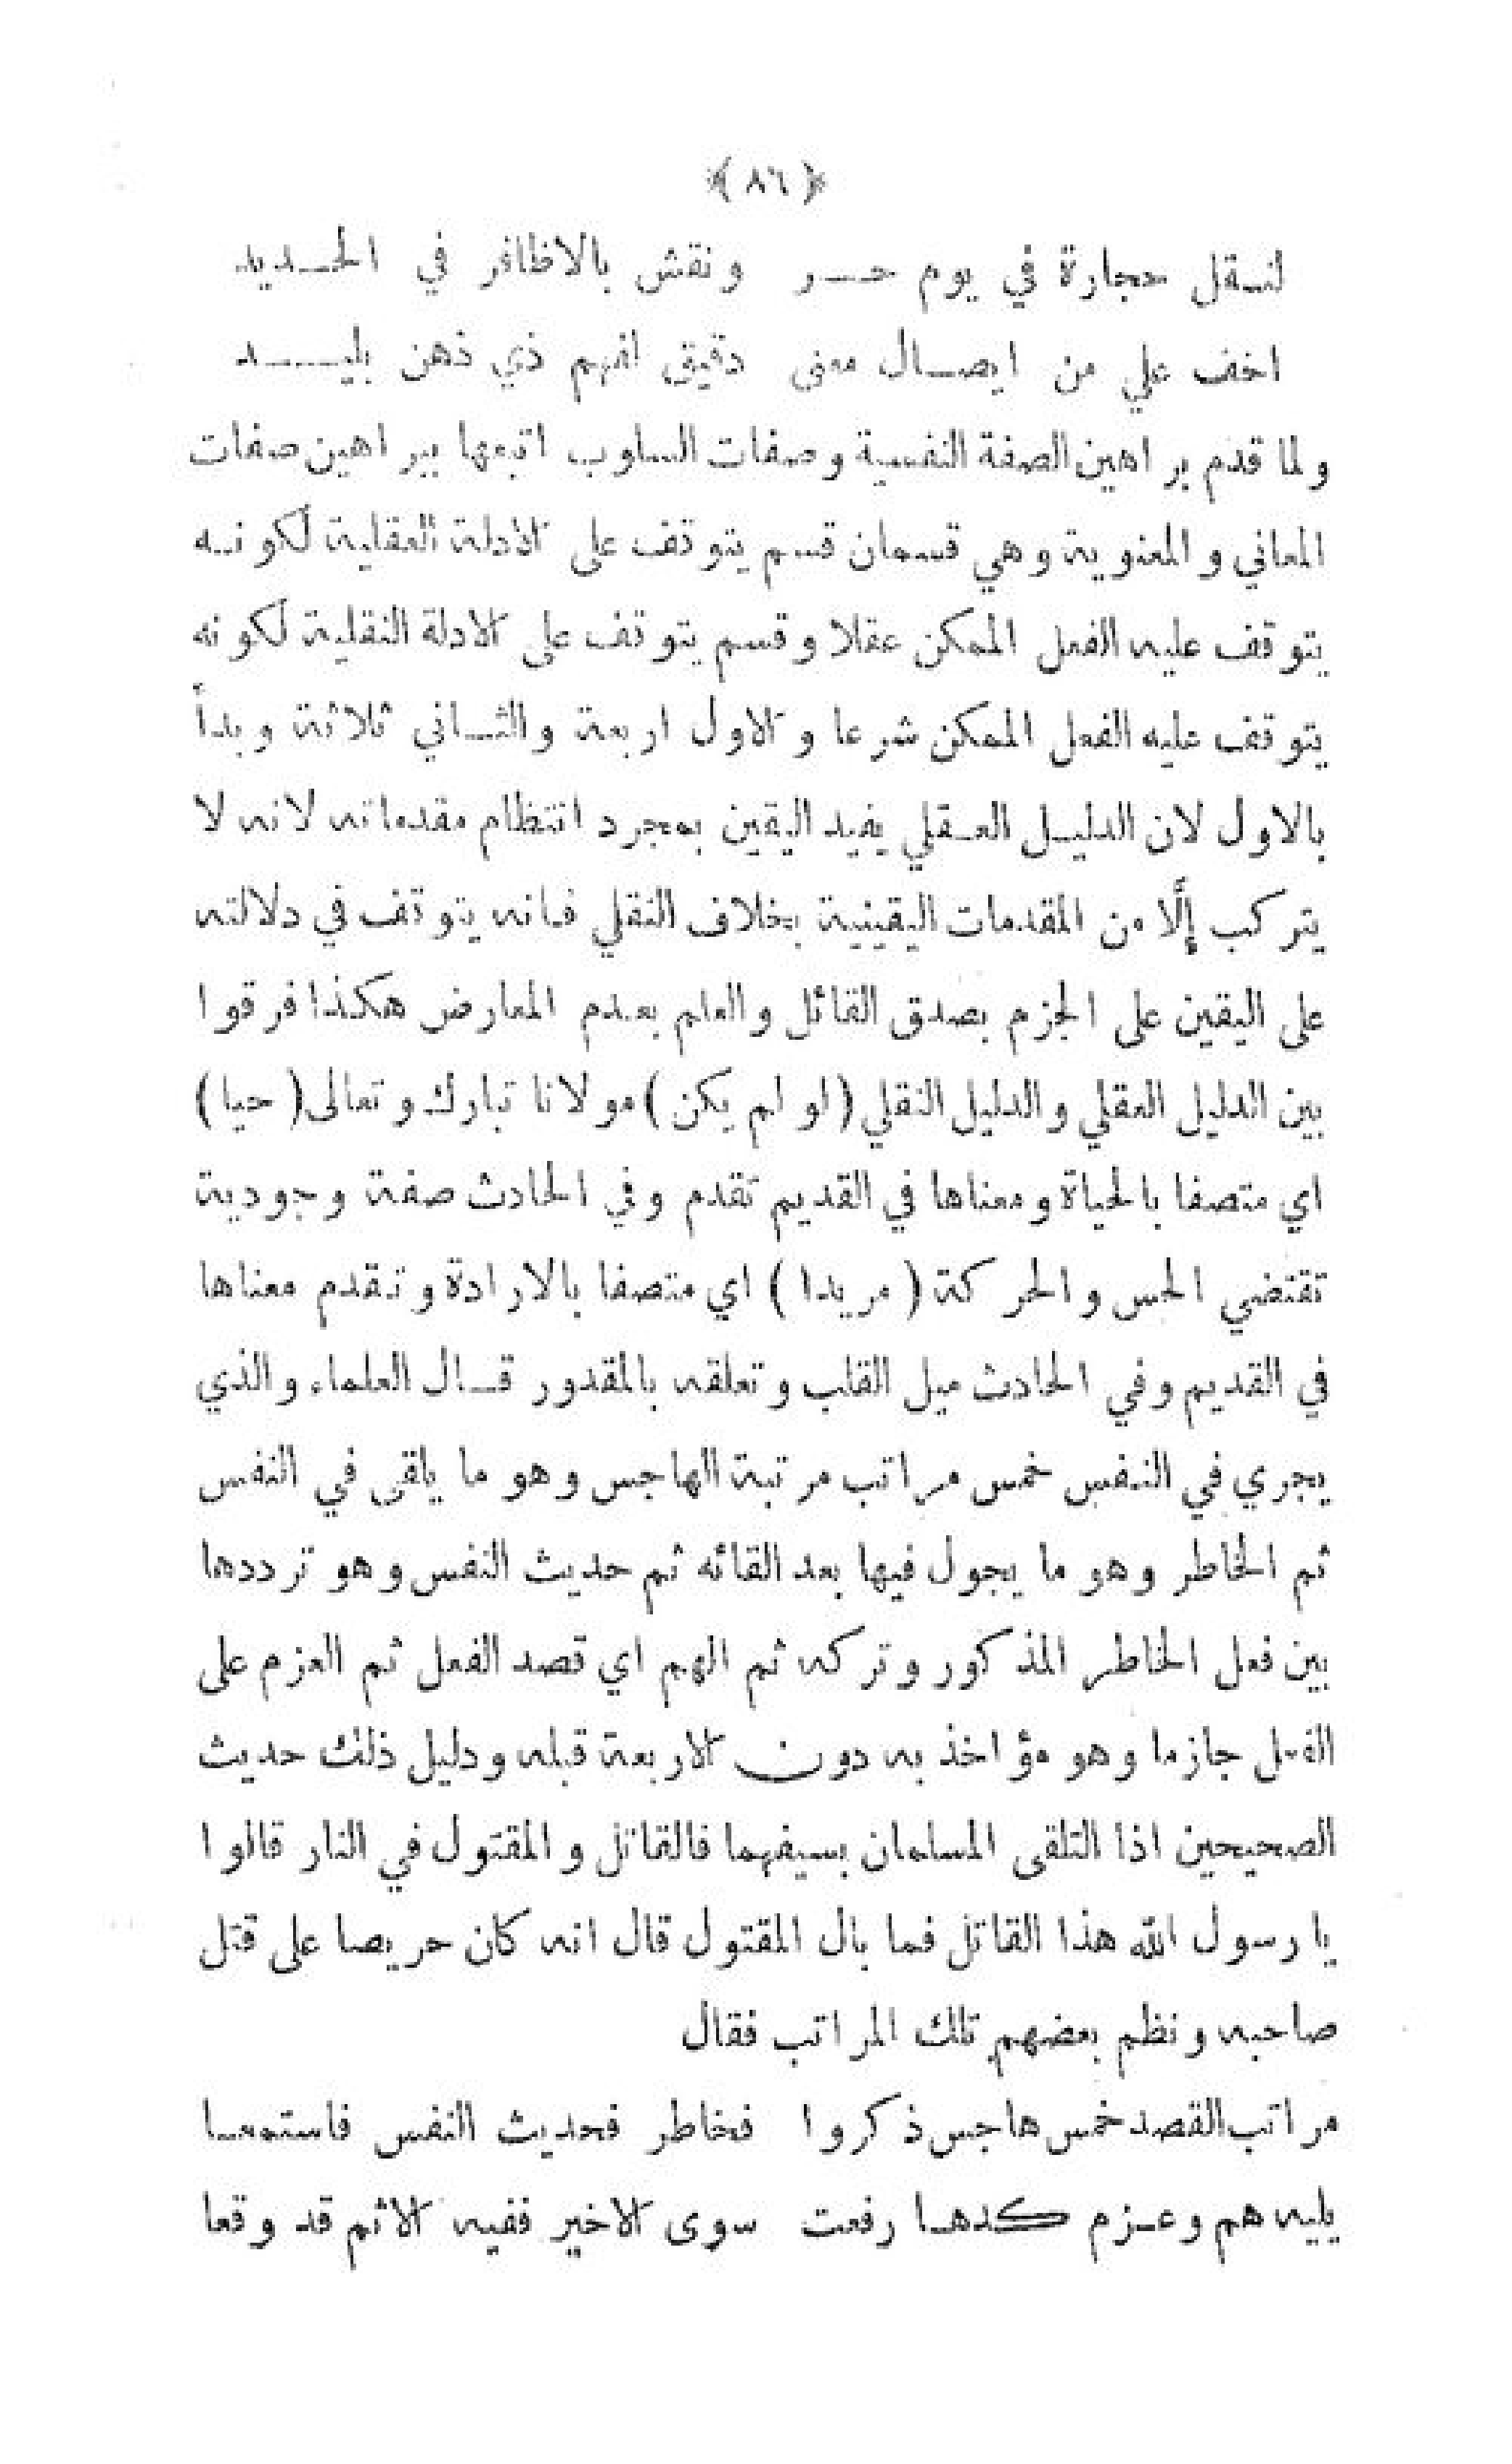 ﴿ ٨٦ ﴾
لنـقل حجارة في يوم حـر ونقش بالاظافر في الحـديد
اخف علي من ايصـال معنى دقيق لفهم ذي ذهن بليـد
ولما قدم براهين الصفة النفسية وصفات السلوب اتبعها ببراهين صفات
المعاني والمعنوية وهي قسمان قسم يتوقف على الادلة العقلية لكونه
يتوقف عليه الفعل الممكن عقلا وقسم يتوقف على الادلة النقلية لكونه
يتوقف عليه الفعل الممكن شرعا والاول اربعة والثـاني ثلاثة وبدأ
بالاول لان الدليـل العـقلي يفيد اليقين بمجرد انتظام مقدماته لانه لا
يتركب إلّا من المقدمات اليقينية بخلاف النقلي فانه يتوقف في دلالته
على اليقين على الجزم بصدق القائل والعلم بعدم المعارض هكذا فرقوا
بين الدليل العقلي والدليل النقلي (لو لم يكن) مولانا تبارك وتعالى (حيا)
اي متصفا بالحياة ومعناها في القديم تقدم وفي الحادث صفة وجودية
تقتضي الحس والحركة (مريدا) اي متصفا بالارادة وتقدم معناها
في القديم وفي الحادث ميل القلب وتعلقه بالمقدور قـال العلماء والذي
يجري في النفس خمس مراتب مرتبة الهاجس وهو ما يلقى في النفس
ثم الخاطر وهو ما يجول فيها بعد القائه ثم حديث النفس وهو ترددها
بين فعل الخاطر المذكور وتركه ثم الهم اي قصد الفعل ثم العزم على
الفعل جازما وهو مؤاخذ به دون الاربعة قبله ودليل ذلك حديث
الصحيحين اذا التلقى المسلمان بسيفهما فالقاتل والمقتول في النار قالوا
يا رسول الله هذا القاتل فما بال المقتول قال انه كان حريصا على قتل
صاحبه ونظم بعضهم تلك المراتب فقال
مراتب القصد خمس هاجس ذكروا فخاطر فحديث النفس فاستمعـا
يليه هم وعـزم كدهـا رفعت سوى الاخير ففيه الاثم قد وقعا